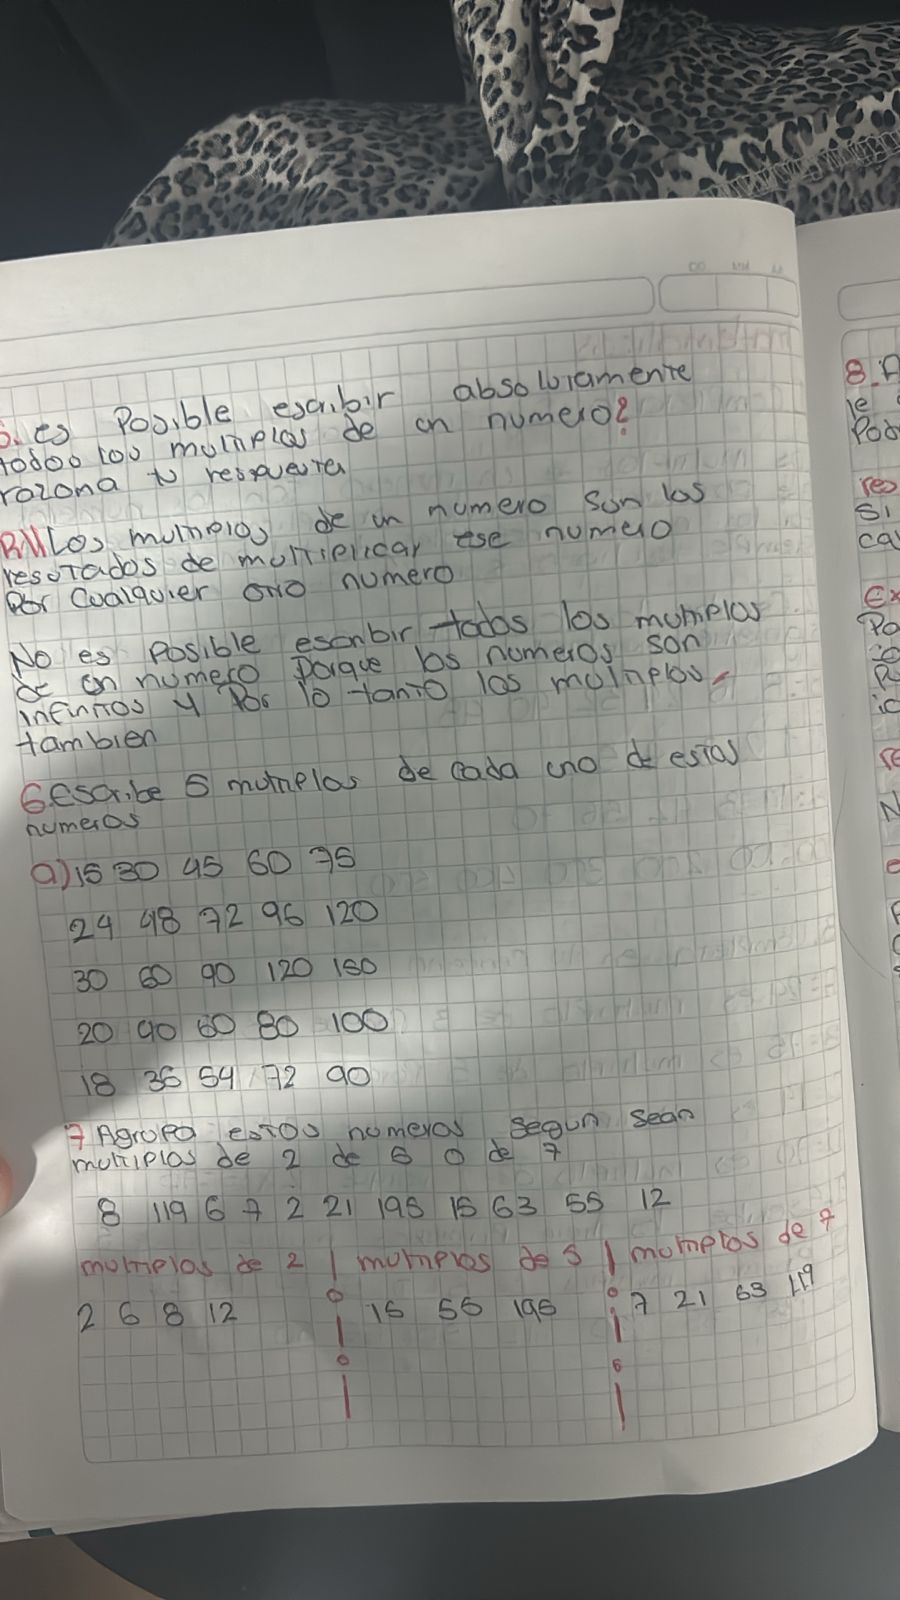 5. es Posible escribir absolutamente
todoo loo multiplos de un numero?
razona tu respuesta
R// Los multiplos de un numero son los
resultados de multiplicar ese numero
Por Cualquier otro numero
No es Posible escribir todos los multiplos
de un numero porque los numeros son
infinitos y Por lo tanto los multiplos
tambien
6 Escribe 5 multiplos de cada uno de estos
numeros
a) 15 30 45 60 75
24 48 72 96 120
30 60 90 120 150
20 40 60 80 100
18 36 54 72 90
7 Agrupa estos numeros segun sean
multiplos de 2 de 5 o de 7
8 119 6 7 2 21 195 15 63 55 12
multiplos de 2 | multiplos de 5 | multiplos de 7
2 6 8 12 15 55 195 7 21 63 119
8. A
le
Pod
res
Si
ca
Ex
Po
N